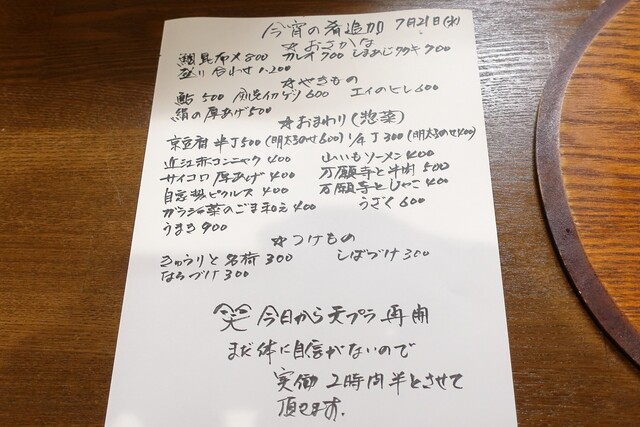 今宵の肴追加 7月21日(水)
☆おさかな
鯛昆布〆800 カレイ700 しまあじタタキ900
盛り合わせ1.200
☆やきもの
鮎500 剣先イカゲソ600 エイのヒレ600
絹の厚あげ500
☆おまわり(惣菜)
京豆腐 半丁500(明太のせ600) 1/4丁300(明太のせ400)
近江赤コンニャク400 山いもソーメン400
サイコロ厚あげ400 万願寺と牛肉500
自家製ピクルス400 万願寺とじゃこ400
ガラシャ菜のごま和え400 うざく600
うまき900
☆つけもの
きゅうりと名荷300 しばづけ300
ならづけ300
今日から天プラ再開
まだ体に自信がないので
実働2時間半とさせて
頂きます.